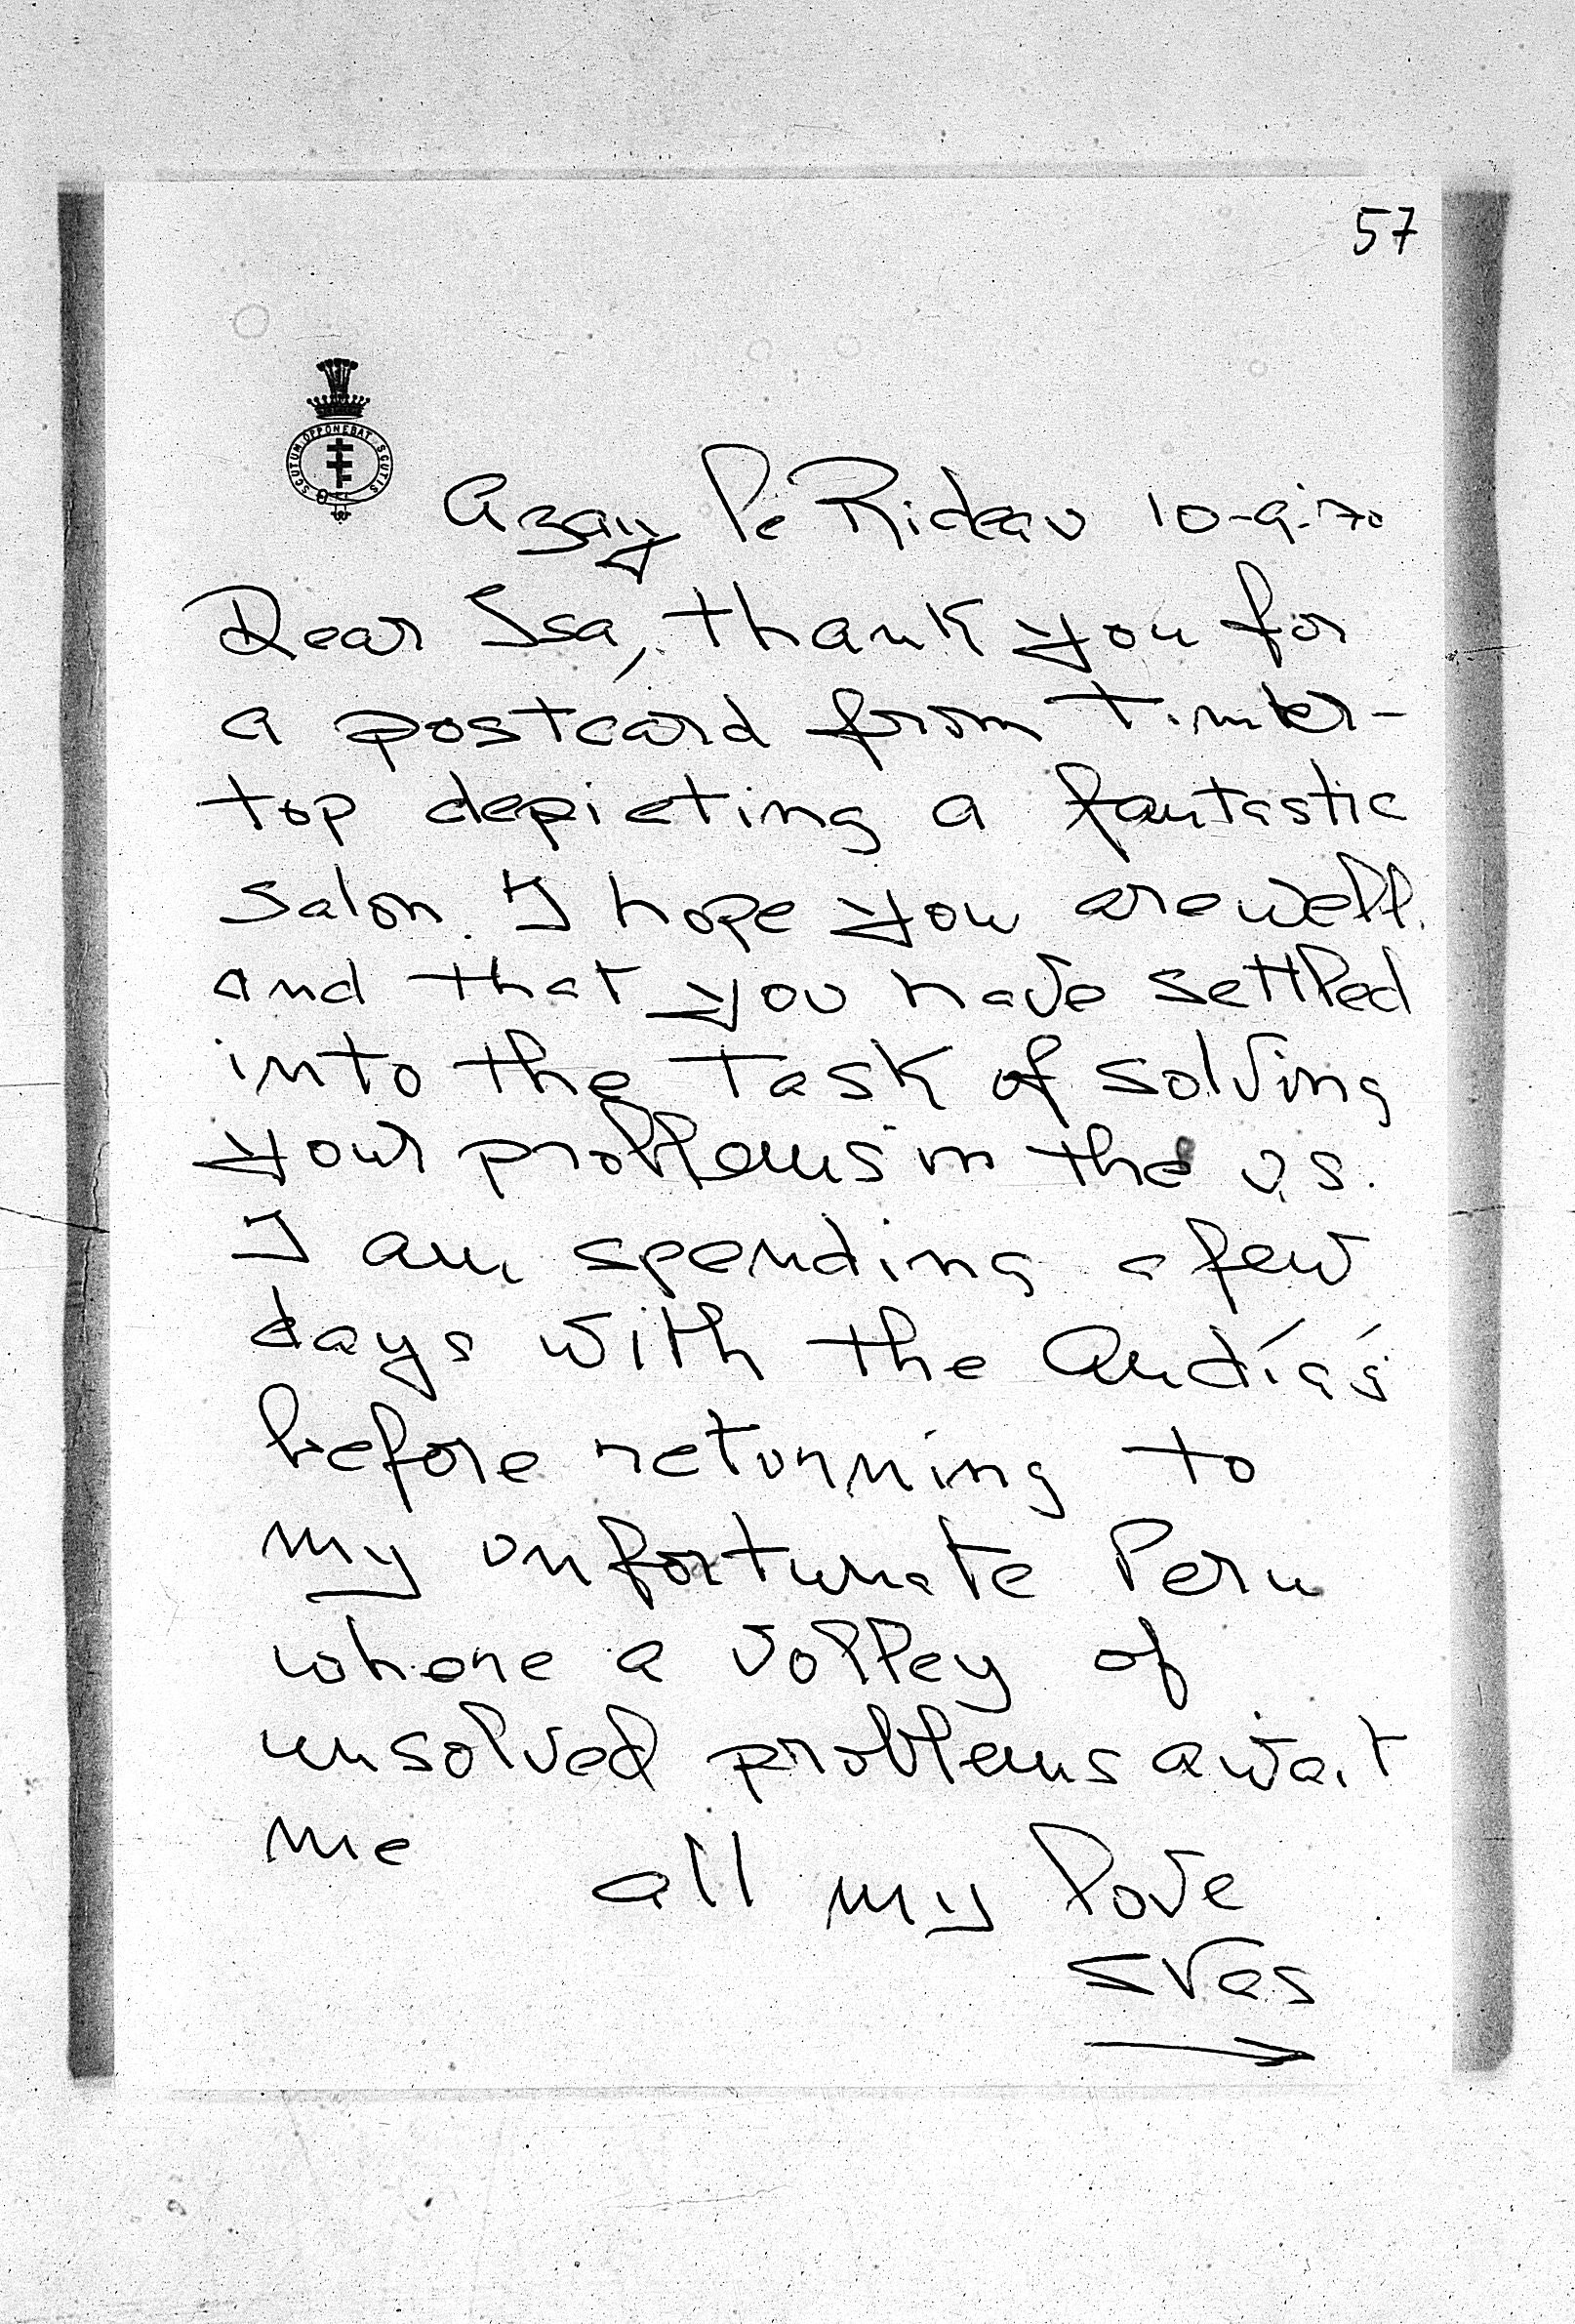 57
SCUTUM OPPONEBAT SCUTIS
Azay le Rideau 10-9-70
Dear Isa, thank you for
a postcard from Timber-
top depicting a fantastic
salon. I hope you are well.
and that you have settled
into the task of solving
your problems in the U.S.
I am spending a few
days with the
before returning to
my unfortunate Peru
where a volley of
unsolved problems await
me
all my love